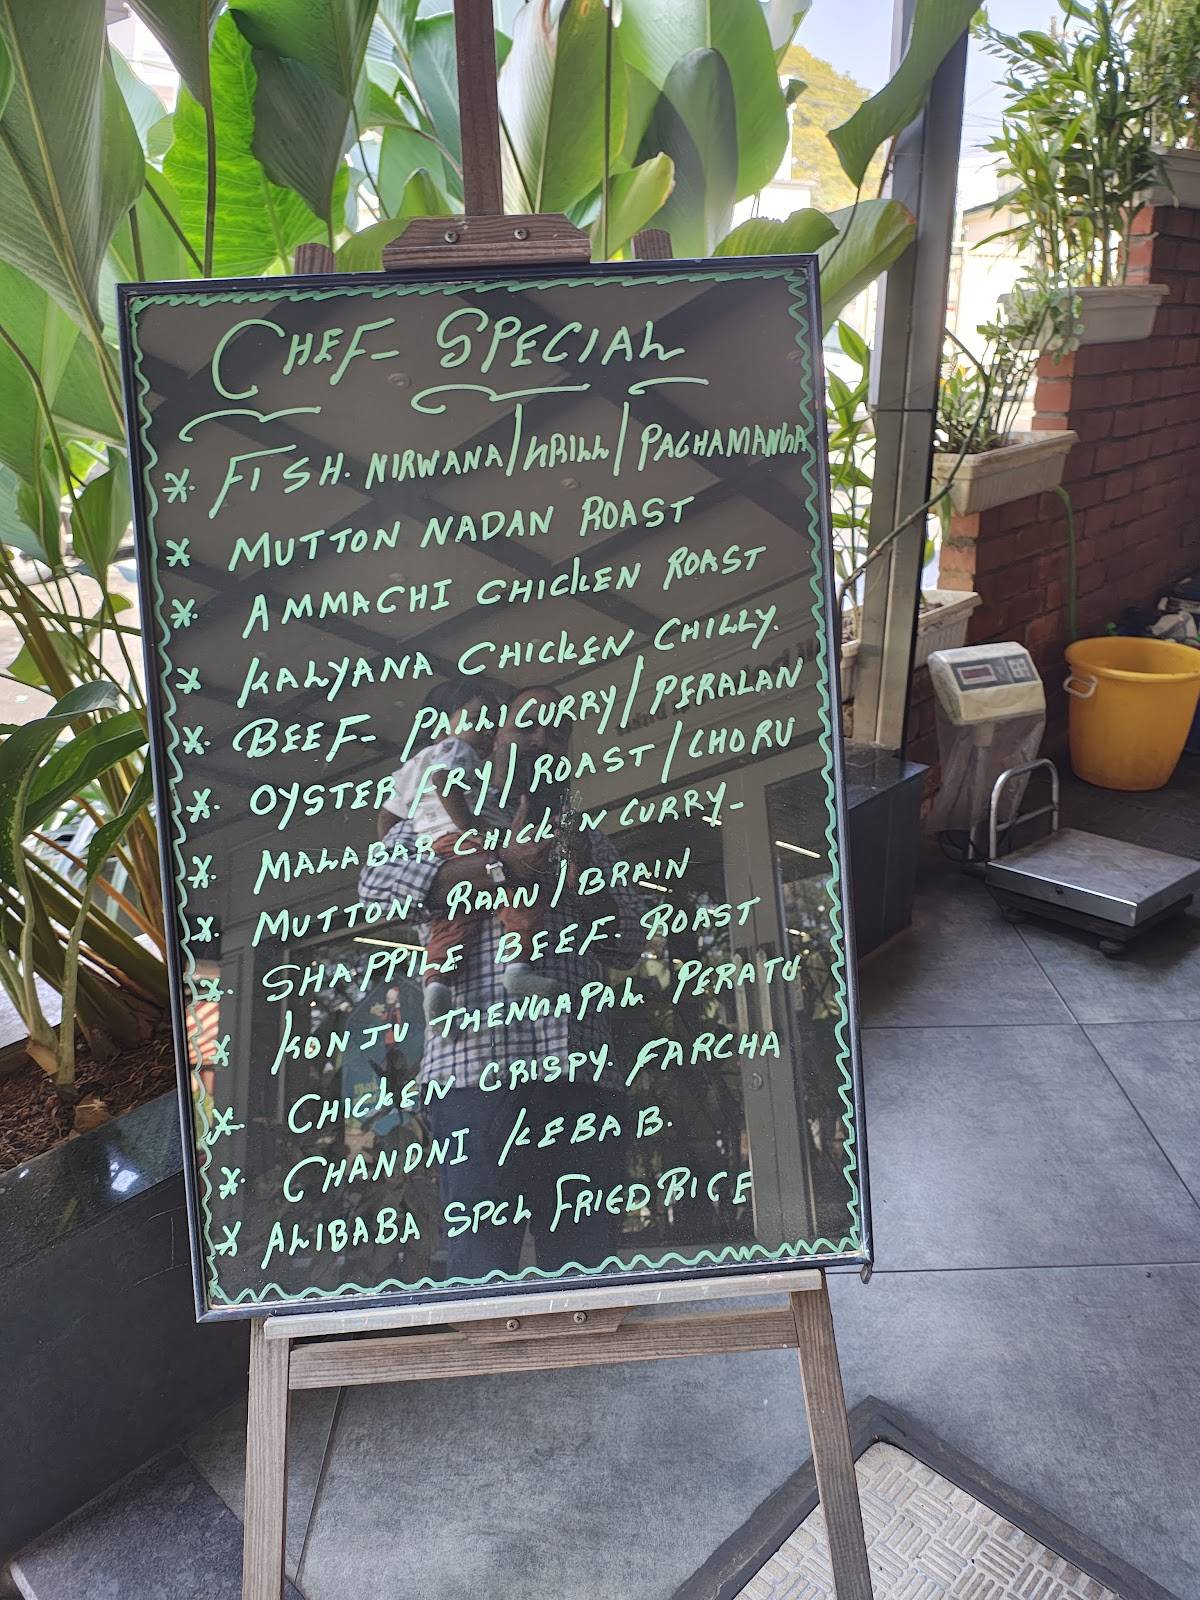 CHEF SPECIAL
* FISH. NIRWANA/GRILL/PACHAMANGA
* MUTTON NADAN ROAST
* AMMACHI CHICKEN ROAST
* KALYANA CHICKEN CHILLY.
* BEEF PALLICURRY/PERALAN
* OYSTER FRY/ROAST/CHORU
* MALABAR CHICKEN CURRY
* MUTTON. RAAN/BRAIN
* SHAPPILE BEEF. ROAST
* KONJU THENGAPAL PERATU
* CHICKEN CRISPY. FARCHA
* CHANDNI KEBAB.
* ALIBABA SPCL FRIED RICE